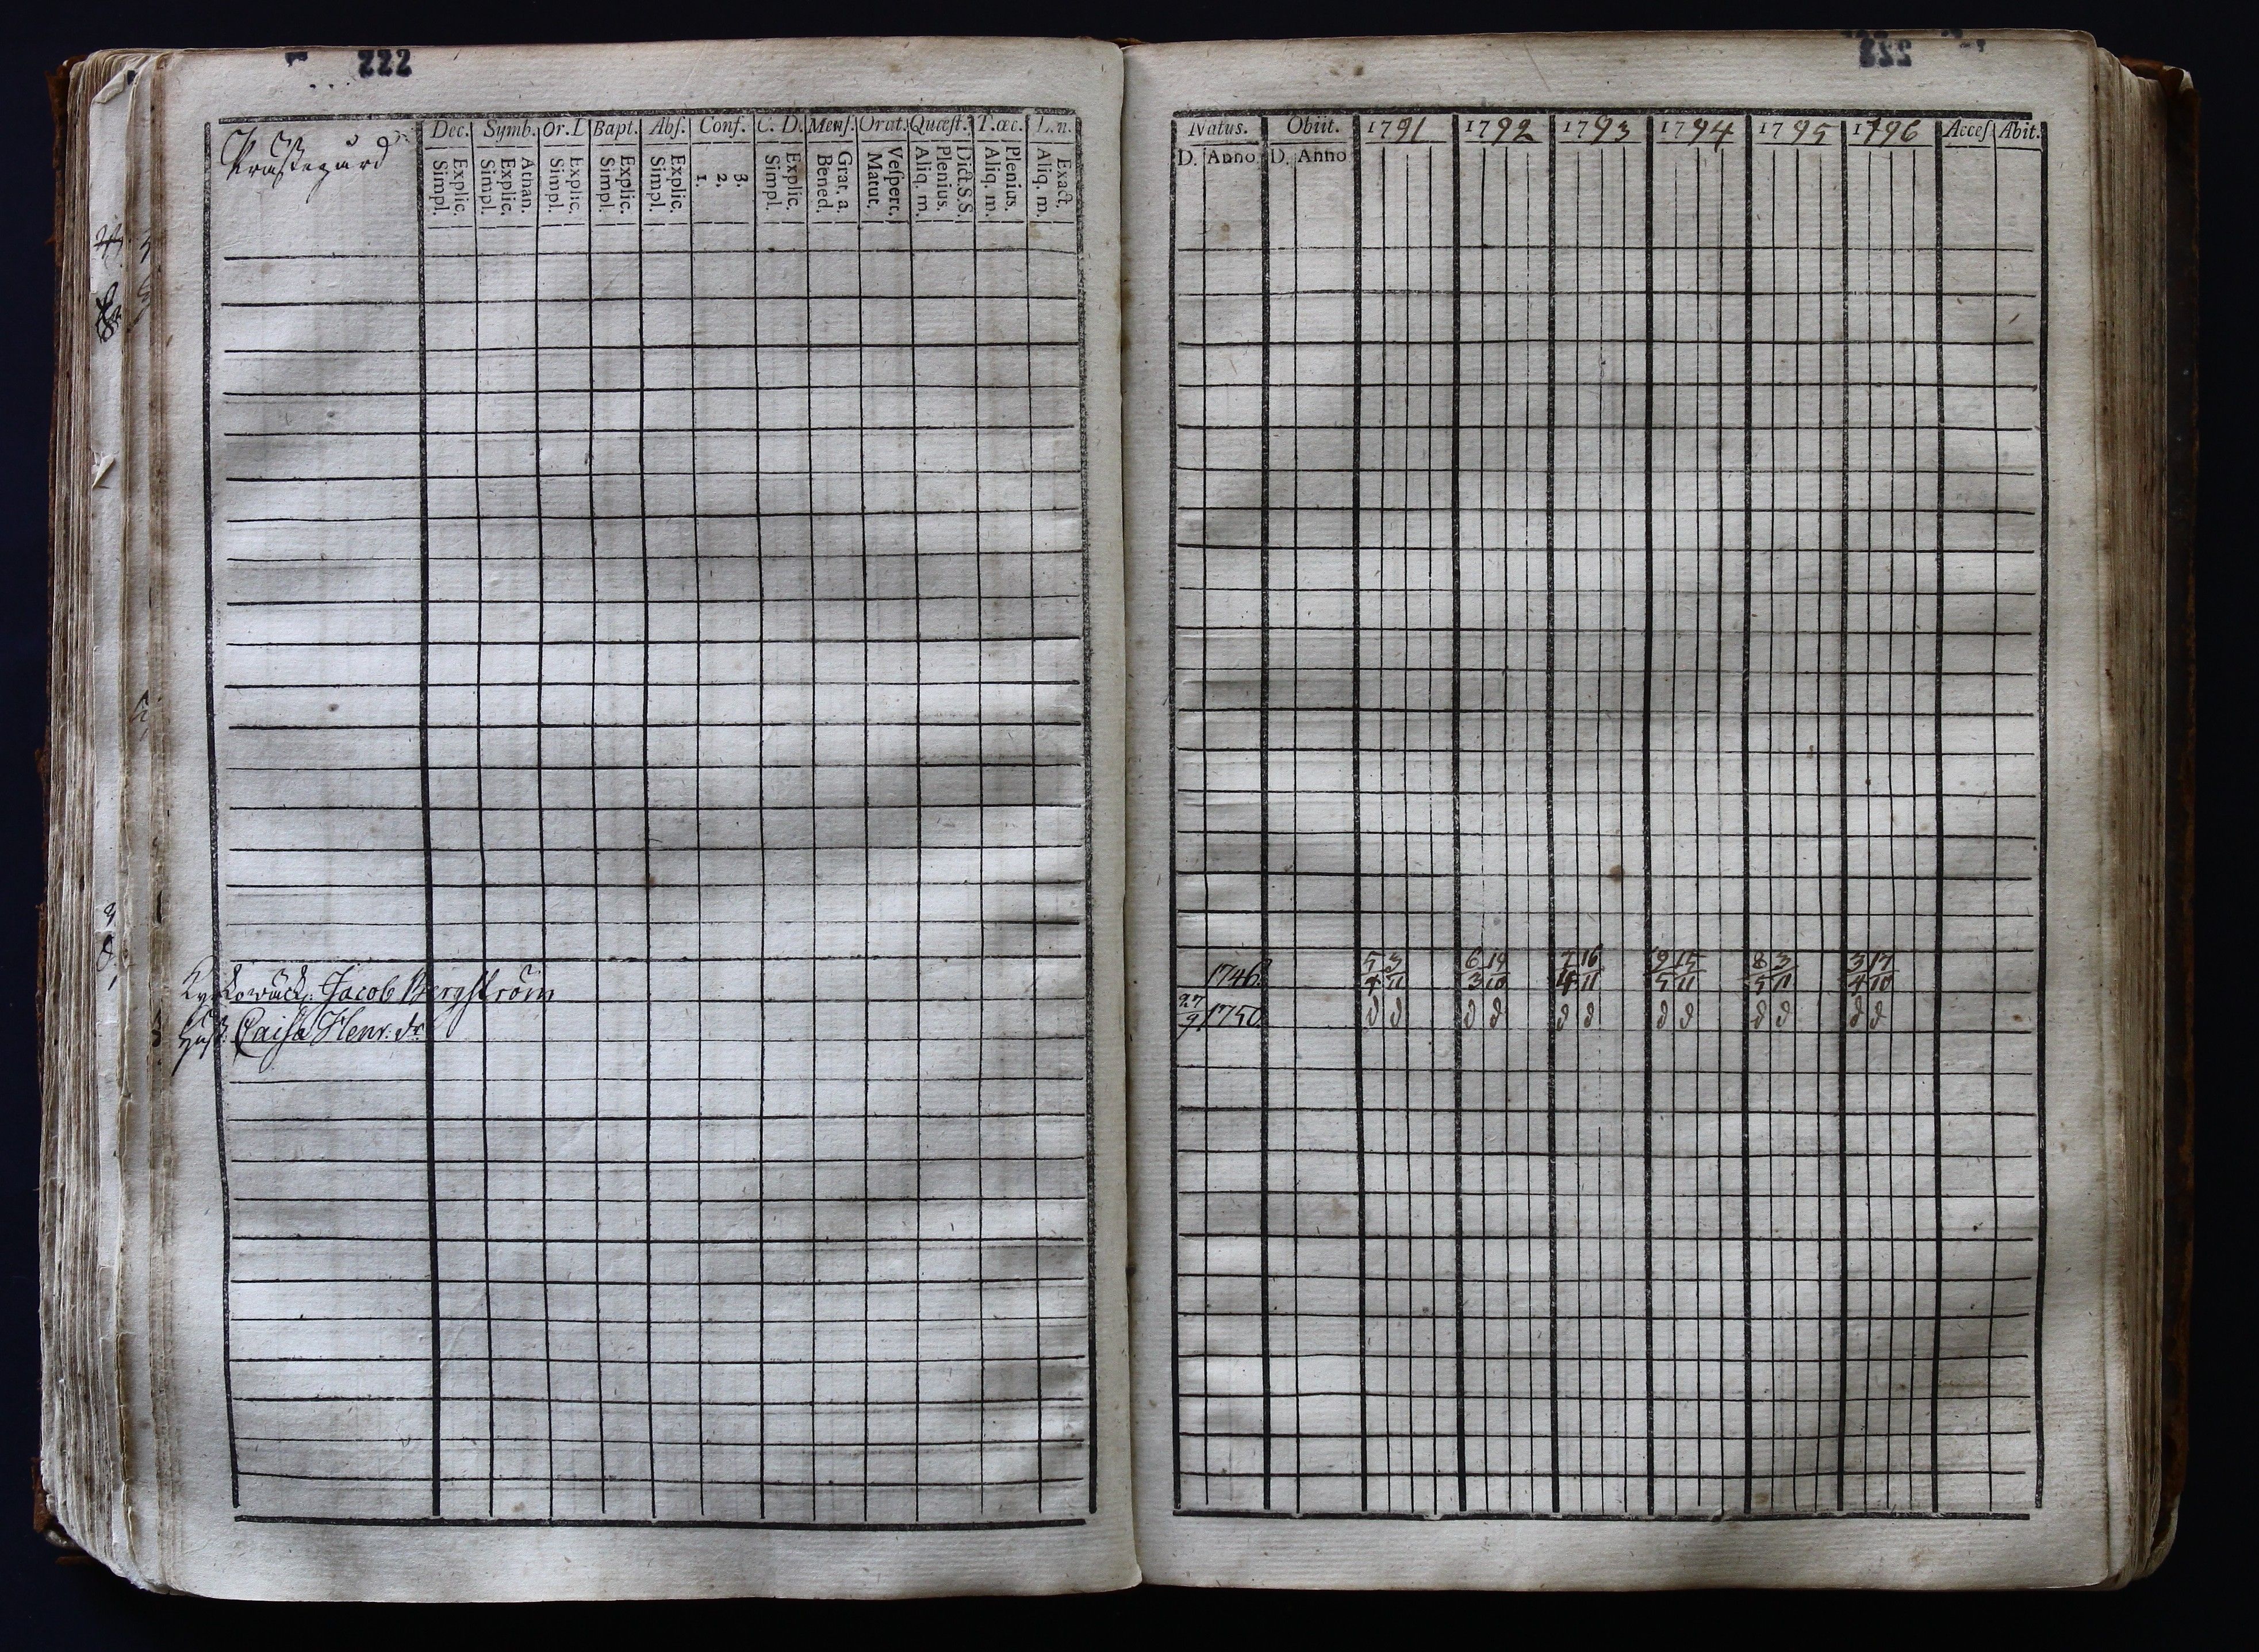 222
Prästegård
Dec. Symb. Or. L Bapt. Abs. Conf. C. D. Mens. Orat. Quæst. T. æc. L. n.
Explic. Simpl. Athan. Explic. Simpl. Explic. Simpl. Explic. Simpl. Explic. Simpl. 3. 2. 1. Explic. Simpl. Grat. a. Bened. Vespert. Matut. Dict. S.S. Plenius. Aliq. m. Plenius. Aliq. m. Exact. Aliq. m.
Jacob Bergström
Hust. Caisa Henr. dr
Natus. Obiit. 1791 1792 1793 1794 1795 1796 Acces Abit.
D. Anno D. Anno
1746 5/4 3/11 6/3 14/10 7/4 16/11 9/5 15/11 8/5 3/11 3/4 17/10
27/9 1750 d d d d d d d d d d d d